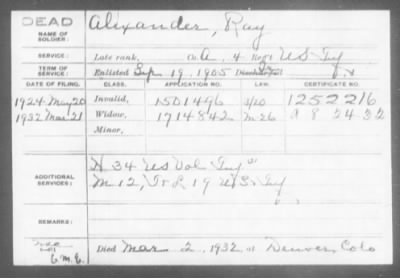 DEAD
NAME OF SOLDIER:
Alexander, Ray
SERVICE:
Late rank, Co. A, 4 Reg't U S Inf
TERM OF SERVICE:
Enlisted Sep 19, 1905 Discharged
DATE OF FILING. CLASS. APPLICATION NO. LAW. CERTIFICATE NO.
1924 May 20 Invalid, 1501496 1252216
1932 Mar 21 Widow, 1714842 M 26 A 8 24 32
Minor,
ADDITIONAL SERVICES:
H 34 US Vol Inf
M 12, &  19 U.S. Inf
REMARKS:
Died Mar 2, 1932 at Denver, Colo